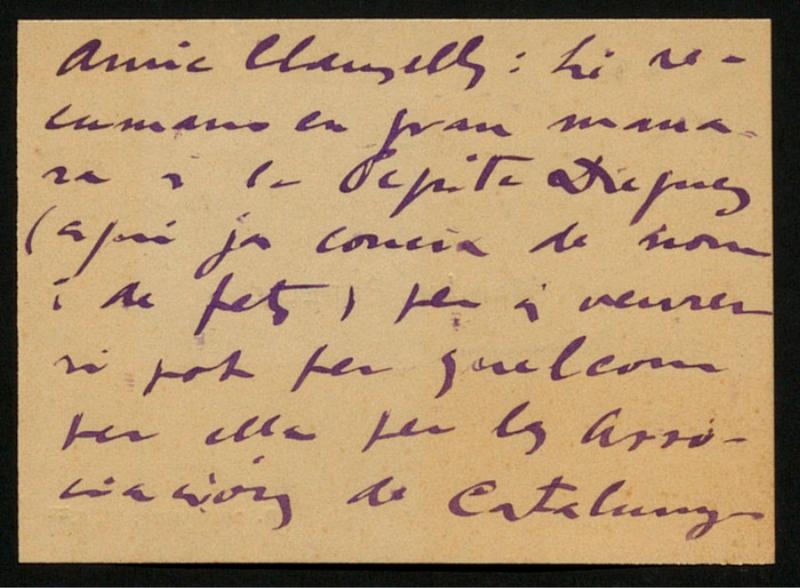 Amic Clausells: Li re-
cumano en gran mana-
ra a la Pepita Dieguez
(a qui ja coneix de nom
i de fets) per a veurer
si pot fer quelcom
per ella per les Asso-
ciacións de Catalunya